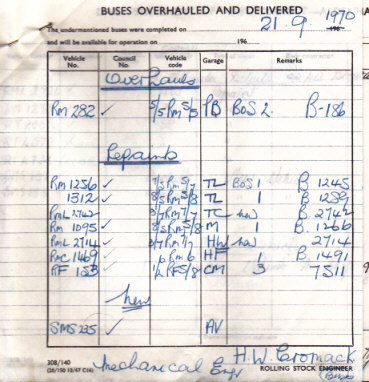 BUSES OVERHAULED AND DELIVERED
21 9 1970
The undermentioned buses were completed on 196
and will be available for operation on 196
Vehicle No. Council No. Vehicle code Garage Remarks
Overhauls
RM 282 ✓ 5/5 RM 5/5 PB BoS 2. B-186
Repaints
RM 1256 ✓ 7/5 RM 5/7 TL BoS 1 B 1245
1312 ✓ 8/5 RM 5/8 TL 1 B 1289
RML 2742 ✓ 7/7 TC new B 2742
RM 1095 ✓ 8/5 RM 5/8 M 1 B 1266
RML 2714 ✓ 7 RM 7/7 HW new 2714
RMC 1469 ✓ RM 6 HF 1 B 1491
RF 183 RF 5/8 CM 3 7511
New
SMS 225 ✓ AV
308/140
Mechanical Engr H.W. Cromack
ROLLING STOCK ENGINEER